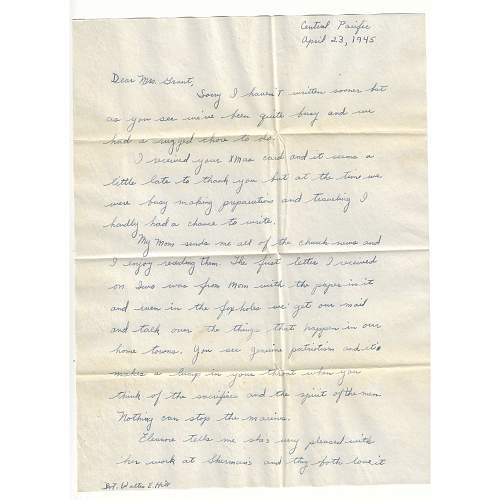 Central Pacific
April 23, 1945
Dear Mrs. Grant,
Sorry I haven't written sooner but
as you see we've been quite busy and we
had a rugged chore to do.
I received your Xmas card and it seems a
little late to thank you but at the time we
were busy making preparations and traveling I
hardly had a chance to write.
My Mom sends me all of the church news and
I enjoy reading them. The first letter I received
on Iwo was from Mom with the paper in it
and even in the foxholes we get our mail
and talk over the things that happen in our
home towns. You see genuine patriotism and it
makes a lump in your throat when you
think of the sacrifice and the spirit of the men.
Nothing can stop the marines.
Eleanore tells me she's very pleased with
her work at Sherman's and they both love it
Walter E. Hill